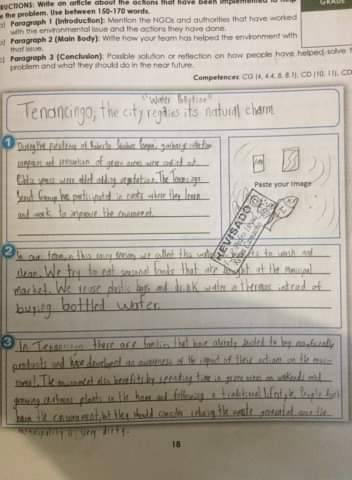 RUCTIONS: Write an article about the actions that have been implemented to help
e the problem. Use between 150-170 words.
Paragraph 1 (Introduction): Mention the NGOs and authorities that have worked
with the environmental issue and the actions they have done.
Paragraph 2 (Main Body): Write how your team has helped the environment with
that issue.
Paragraph 3 (Conclusion): Possible solution or reflection on how people have helped, solve
problem and what they should do in the near future.
Competences: CG (4, 4.4, 8, 8.1), CD (10, 11), CD
GRADE
"Water Pollution"
Tenancingo, the city regains its natural charm.
1
During the presidency of Roberto garbage collection
campaigns and of green areas were carried out.
were added adding vegetation. The Tenancingo
Scout Group has participated in events where they learn
and work to improve the environment.
Paste your image
REVISADO
2
In our team, in this rainy season we collect the water to wash and
clean. We try to eat seasonal foods that are bought at the municipal
market. We reuse plastic bags and drink water in thermos instead of
buying bottled water.
3
In Tenancingo there are families that have already decided to buy
products and have developed an awareness of the impact of their actions on the
The environment also benefits by spending time in green areas on weekends and
growing plants in the home and following a traditional lifestyle. People
the environment, but they should consider reducing the waste generated since the
municipality is very dirty.
18